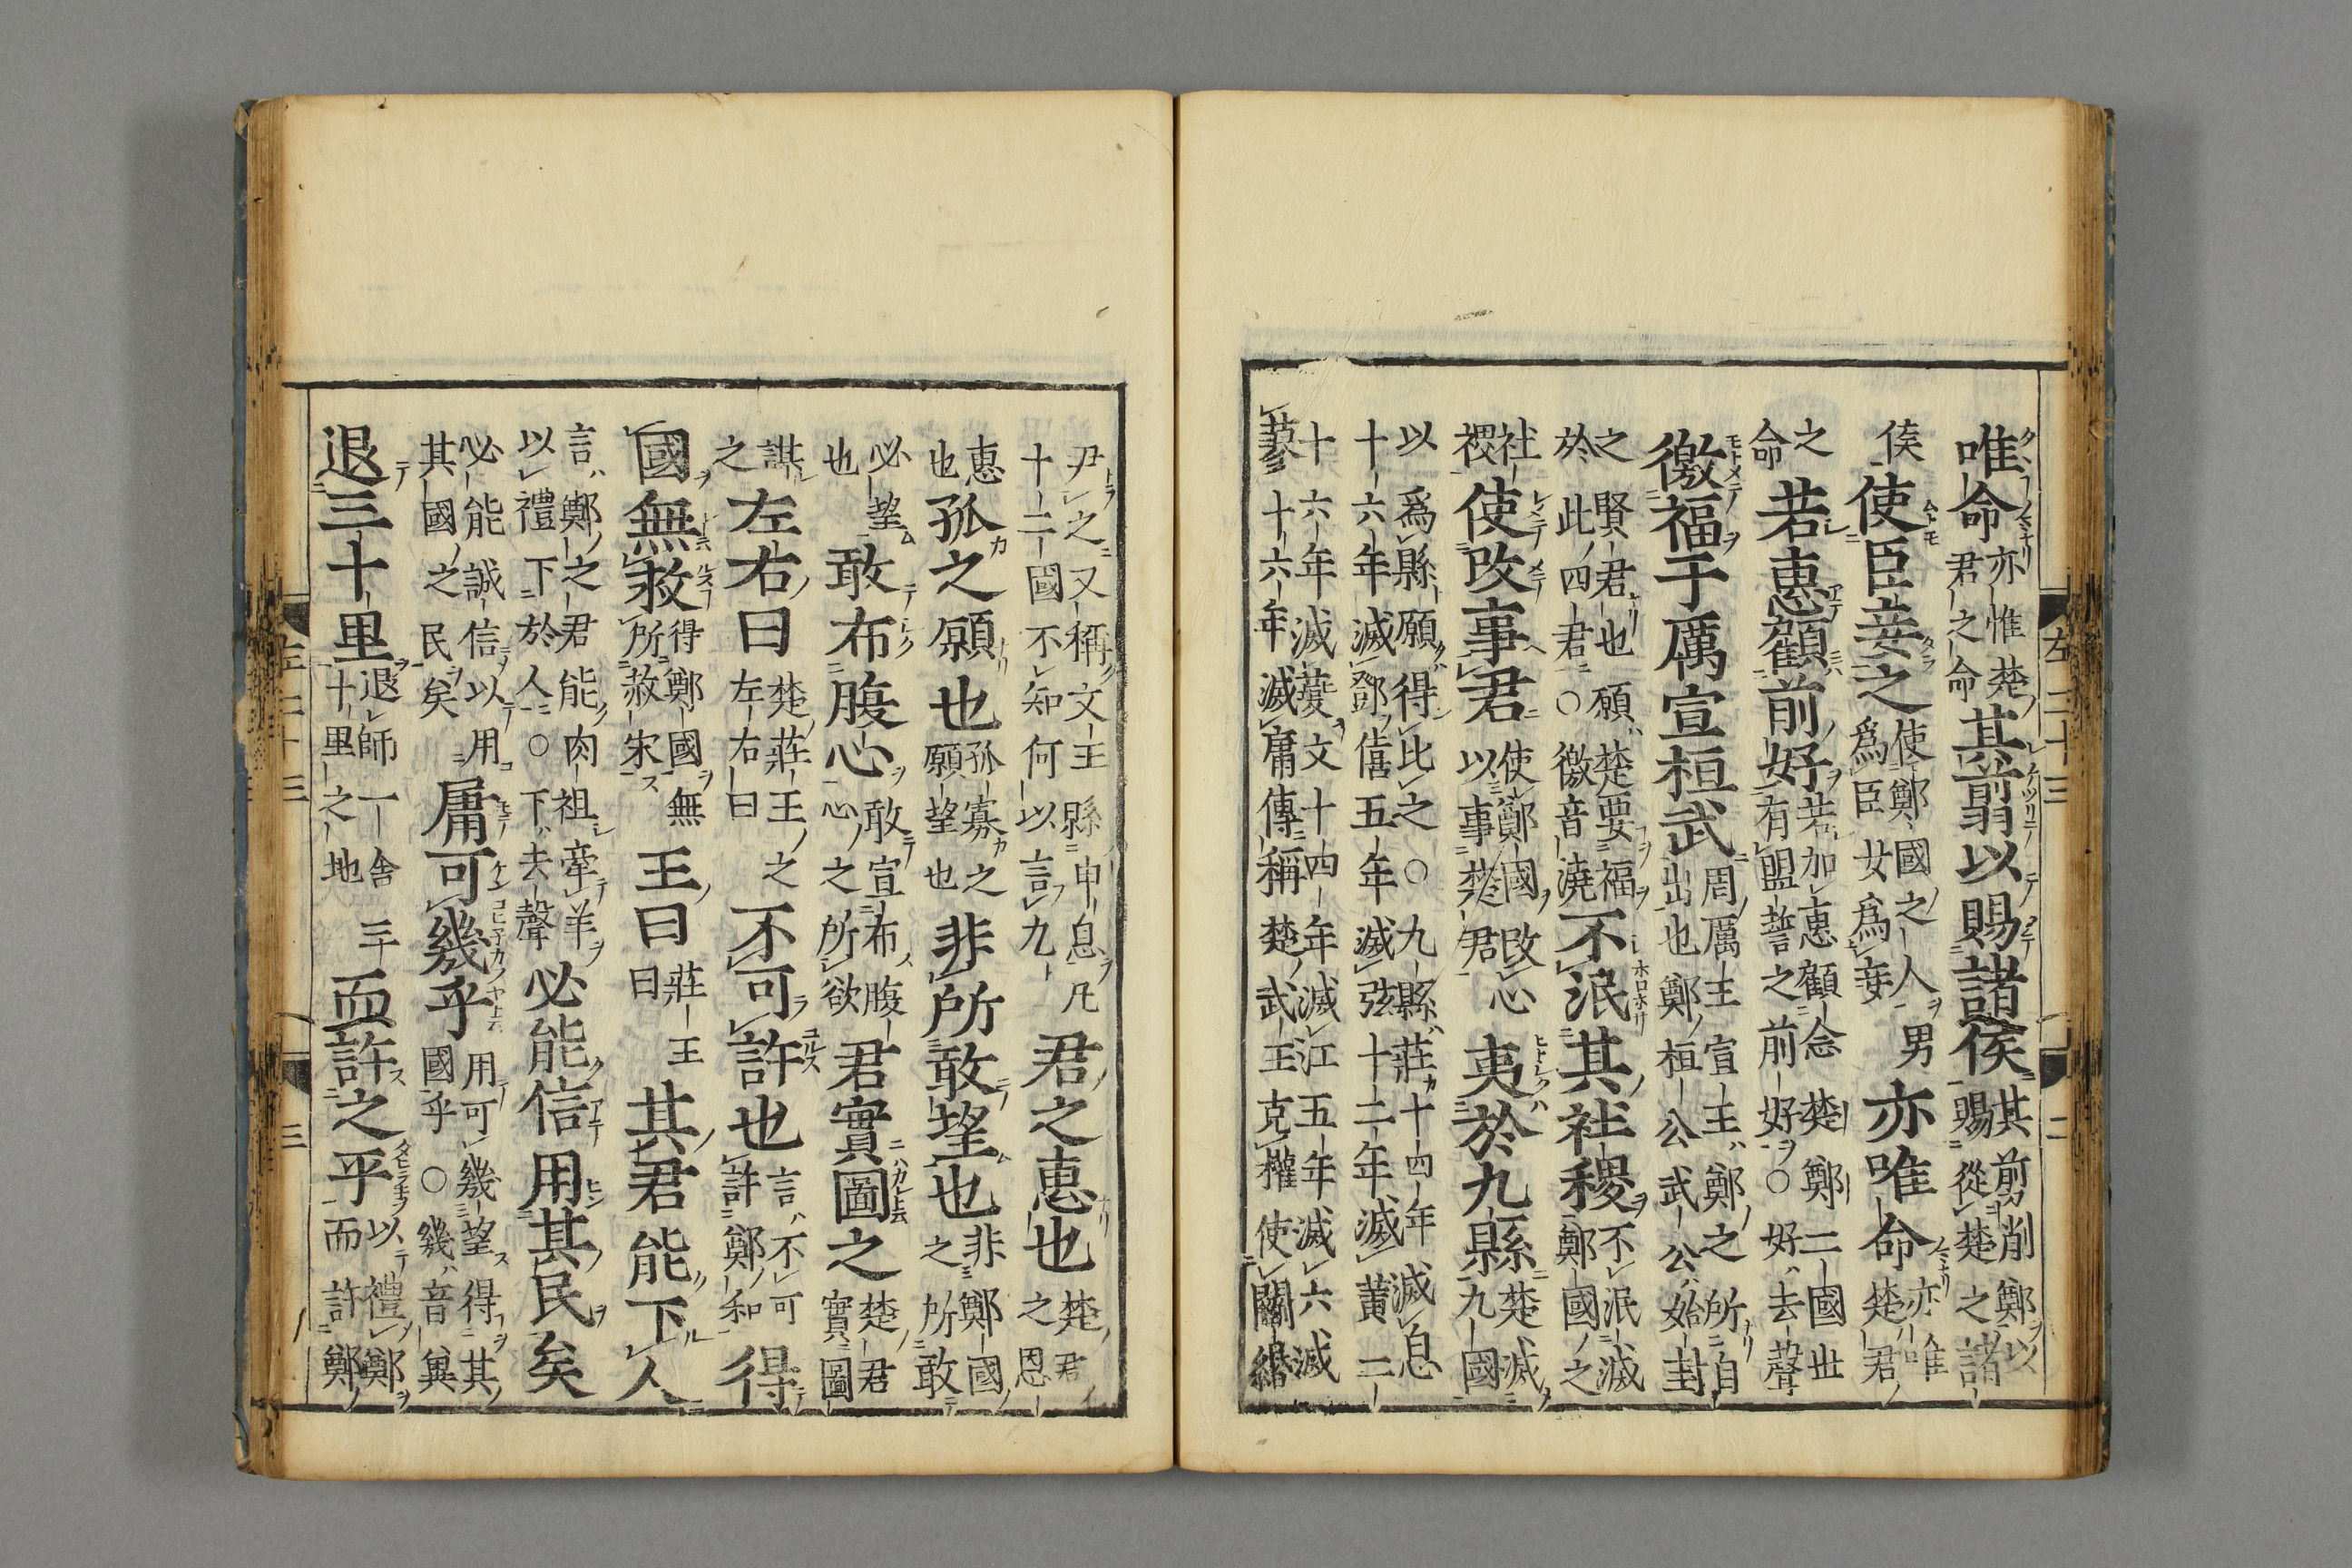 唯命亦惟楚君之命其翦以賜諸侯其剪削鄭以賜從楚之諸
侯使臣妾之使鄭國之人男爲臣女爲妾亦唯命亦唯楚君
之命若惠顧前好若加惠顧念楚鄭二國世有盟誓之前好○好去聲
徼福于厲宣桓武周厲王宣王鄭之所自出也鄭桓公武公始封
之賢君也願楚要福於此四君○徼音澆不泯其社稷不泯滅鄭國之
社稷使改事君使鄭國改心以事楚君夷於九縣楚滅九國
以爲縣願得比之○九縣莊十四年滅息十六年滅鄧僖五年滅弦十二年滅黃二
十六年滅夔文十四年滅江五年滅六滅蓼十六年滅庸傳稱楚武王克權使鬬緡
尹之又稱文王縣申息凡十二國不知何以言九君之惠也楚君之恩
惠也孤之願也孤寡之願望也非所敢望也非鄭國之所敢
必望也敢布腹心敢宣布腹心之所欲君實圖之楚君實圖
謀之左右曰楚莊王之左右曰不可許也言不可許鄭和得
國無赦得鄭國無所赦宋王曰莊王曰其君能下人
言鄭之君能肉祖牽羊以禮下於人○下去聲必能信用其民矣
必能誠信以用其國之民矣庸可幾乎用可幾望得其國乎○幾音兾
退三十里退師一舍三十里之地而許之平以禮鄭而許鄭
左二十三
二
左二十三
三